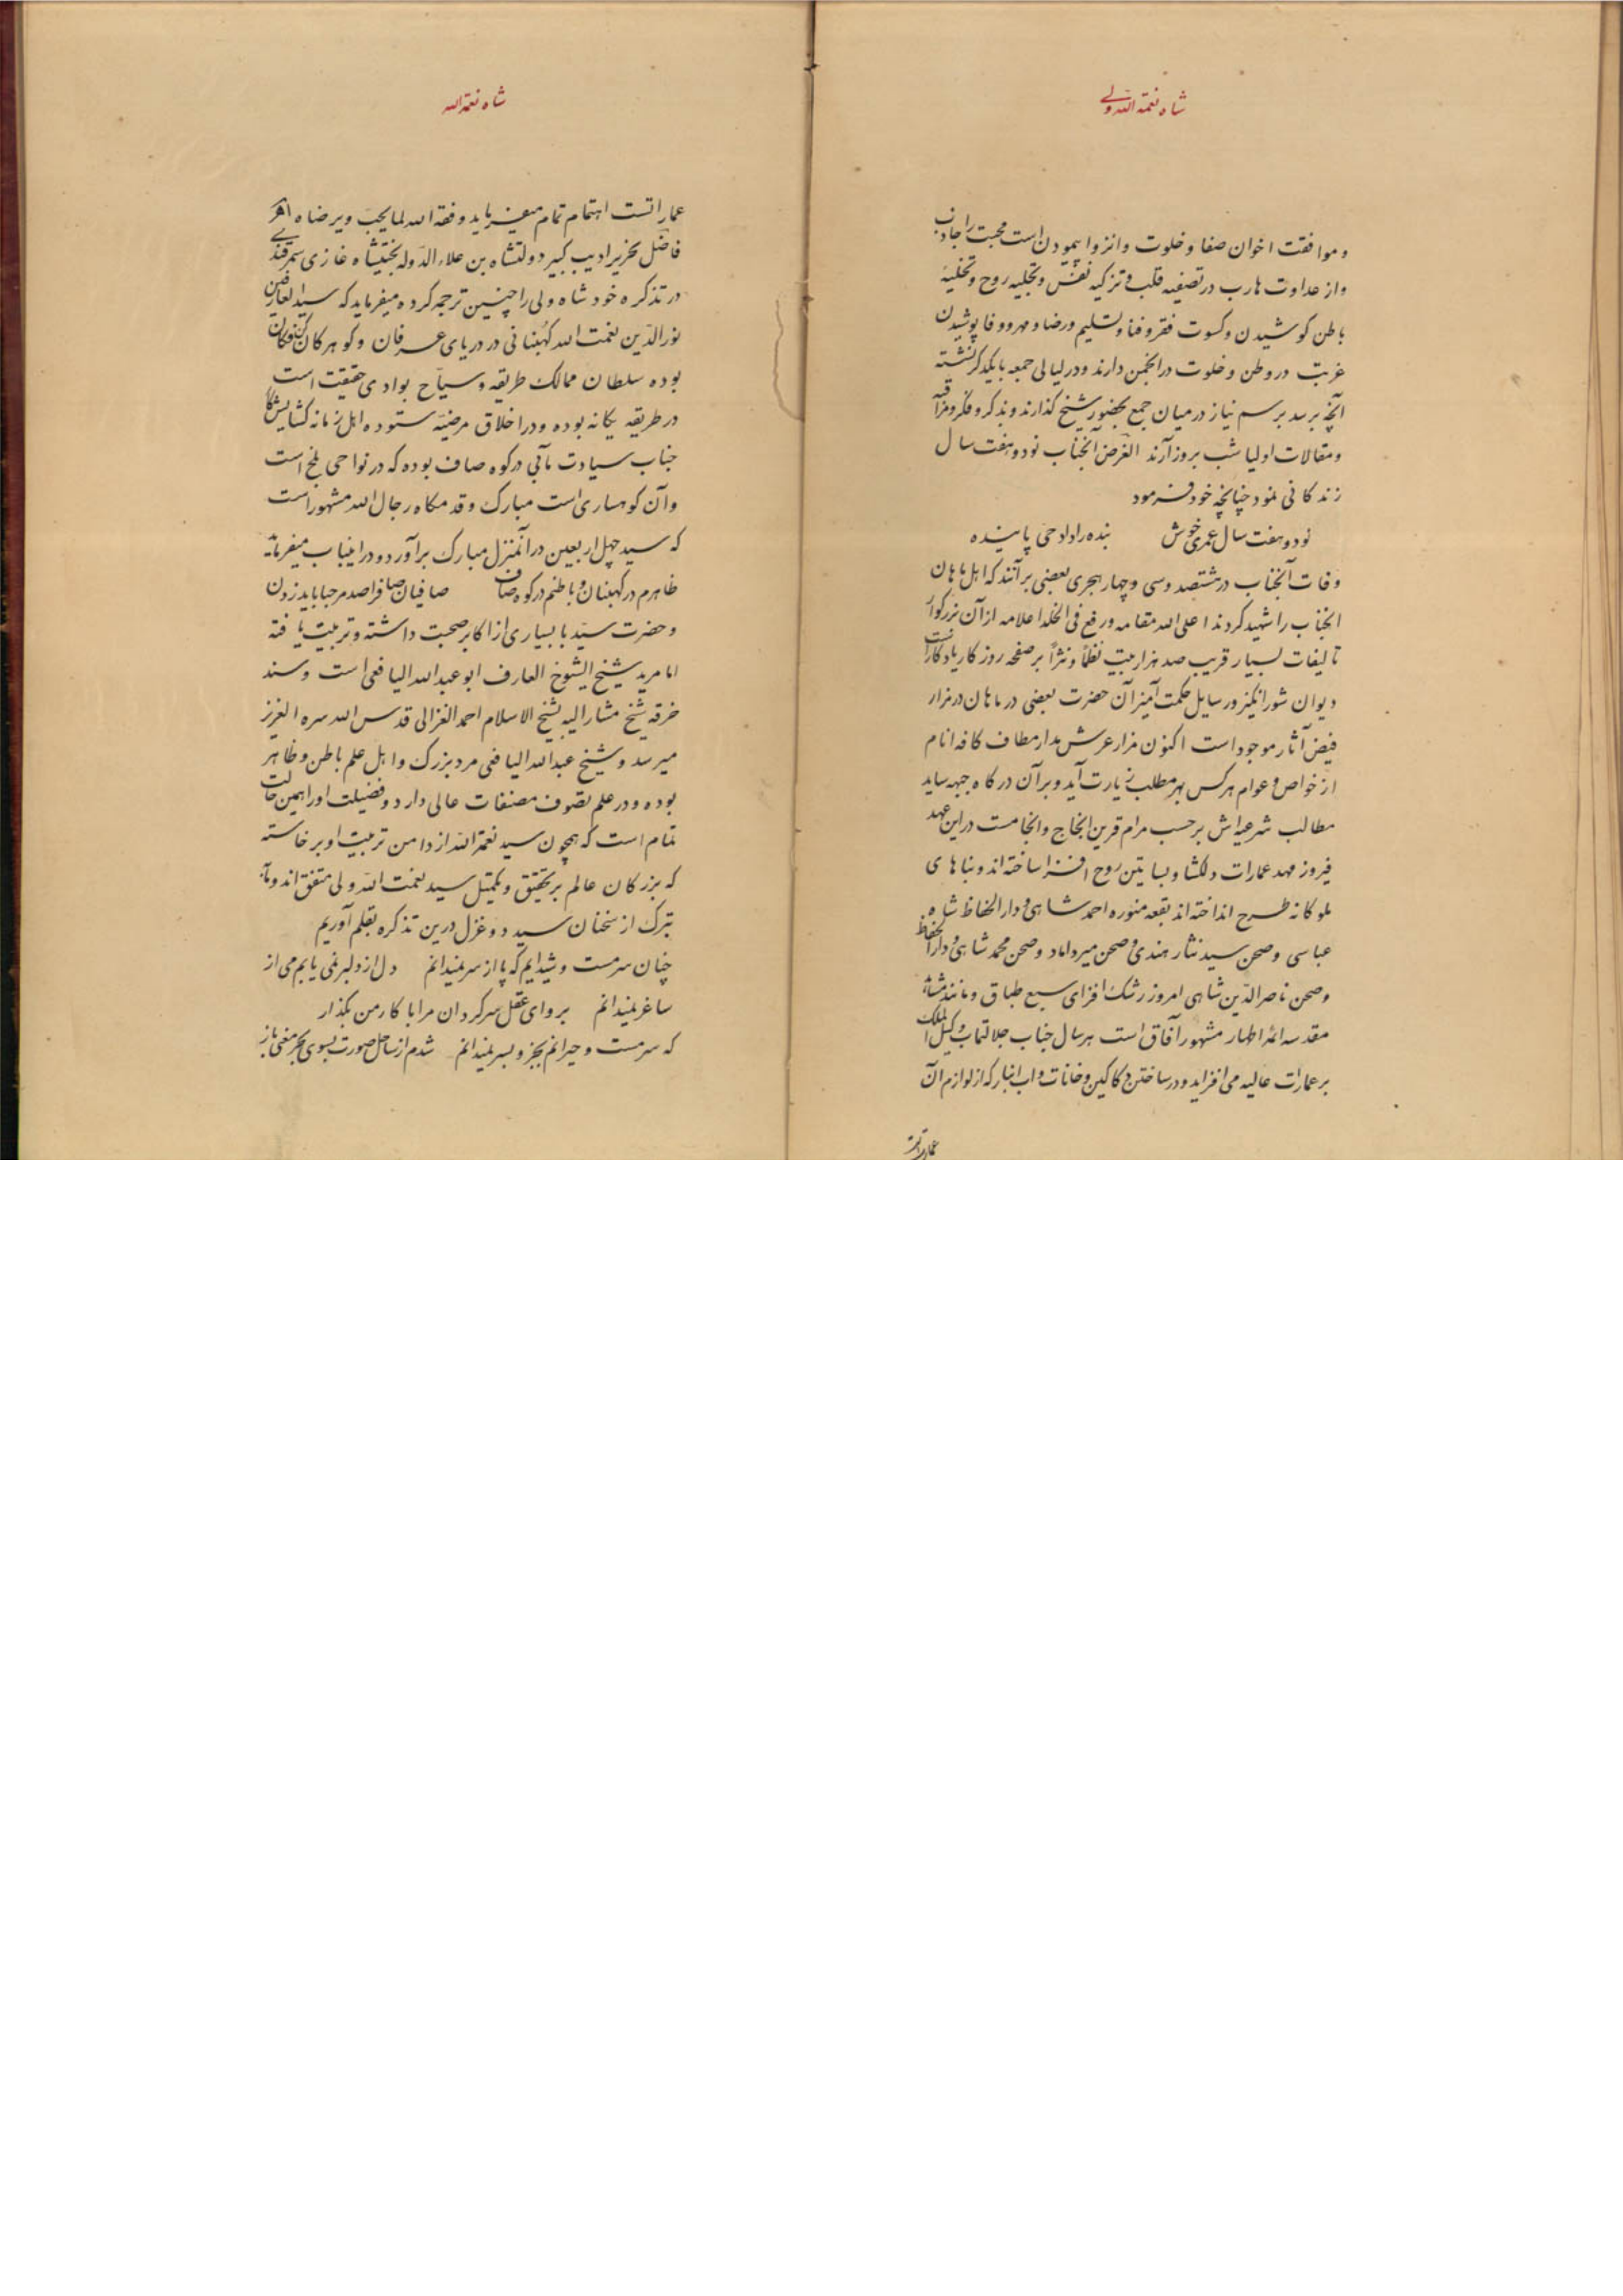 شاه نعمة الله ولی
و موافقت اخوان صفا و خلوت و انزوا پیمودن است محبت را جاذب
و از عداوت هارب در تصفیه قلب و تزکیه نفس و تجلیه روح و تخلیهٔ
باطن کوشیدن و کسوت فقر و فنا و تسلیم و رضا و مهر و وفا پوشیدن
غربت در وطن و خلوت در انجمن دارند و در لیالی جمعه با یکدگر نشسته
آنچه برسد برسم نیاز در میان جمع بحضور شیخ گذارند و بذکر و فکر و مراقبه
و مقالات اولیا شب بروز آرند الغرض آنجناب نود و هفت سال
زندکانی نمود چنانچه خود فرمود
نود و هفت سال عمری خوش بنده را داد حی پاینده
وفات آنجناب در هشتصد و سی و چهار هجری بعضی برآنند که اهل ماهان
انجناب را شهید کردند اعلی الله مقامه و رفع فی الخلد اعلامه از آن بزرکوار
تالیفات بسیار قریب صد هزار بیت نظماً و نثراً بر صفحه روزکار یادکار است
دیوان شورانکیز و رسایل حکمت آمیز آن حضرت بعضی در ماهان در مزار
فیض آثار موجود است اکنون مزار عرش مدار مطاف کافه انام
از خواص و عوام هرکس بهر مطلب زیارت آید و بر آن درکاه جبهه ساید
مطالب شرعیه‌اش برحسب مرام قرین انجاح و انجامست در این عهد
فیروز مهد عمارات دلکشا و بساتین روح افزا ساخته‌اند و بناهای
ملوکانه طرح انداخته‌اند بقعه منوره احمد شاهی و دار الحفاظ شاه
عباسی و صحن سید نثار هندی و صحن میرداماد و صحن محمد شاهی و دار الحفاظ
و صحن ناصر الدین شاهی امروز رشک افزای سبع طباق و مانند مشاهد
مقدسه ائمه اطهار مشهور آفاق است هر سال جناب جلالتمآب وکیل الملک
بر عمارات عالیه می افزاید و در ساختن دکاکین و خانات و اب انبار که از لوازم آن
عماراتست
شاه نعمة الله
عماراتست اهتمام تمام میفرماید وفقه الله لما یحب و یرضاه
فاضل نحریر ادیب کبیر دولتشاه بن علاء الدوله بختیشاه غازی سمرقندی
در تذکره خود شاه ولی را چنین ترجمه کرده میفرماید که سید العارفین
نور الدین نعمت الله کهبنانی در دریای عرفان و کوهر کان کن فکان
بوده سلطان ممالک طریقه و سیاح بوادی حقیقت است
در طریقه یکانه بوده و در اخلاق مرضیه ستوده اهل زمانه کشایش کار
جناب سیادت مآبی در کوه صاف بوده که در نواحی بلخ است
و آن کوهساری است مبارک و قدمکاه رجال الله مشهور است
که سید چهل اربعین در آنمنزل مبارک برآورد و در اینباب میفرماید
ظاهرم در کهبنان و باطنم در کوه صاف صافیان صاف را صد مرحبا باید زدن
و حضرت سید با بسیاری از اکابر صحبت داشته و تربیت یافته
اما مرید شیخ الشیوخ العارف ابو عبد الله الیافعی است و سند
خرقه شیخ مشار الیه بشیخ الاسلام احمد الغزالی قدس الله سره العزیز
میرسد و شیخ عبد الله الیافعی مرد بزرک و اهل علم باطن و ظاهر
بوده و در علم تصوف مصنفات عالی دارد و فضیلت او را همین حالت
تمام است که همچون سید نعمة الله از دامن تربیت او برخاسته
که بزرکان عالم بر تحقیق و تکمیل سید نعمت الله ولی متفق‌اند و ما
تبرک از سخنان سید دو غزل درین تذکره بقلم آوریم
چنان سرمست و شیدایم که پا از سر نمیدانم دل از دلبر نمی یابم می از
ساغر نمیدانم برو ای عقل سرکردان مرا با کار من بکذار
که سرمست و حیرانم بجز و بسر نمیدانم شدم از ساحل صورت بسوی بحر معنی باز